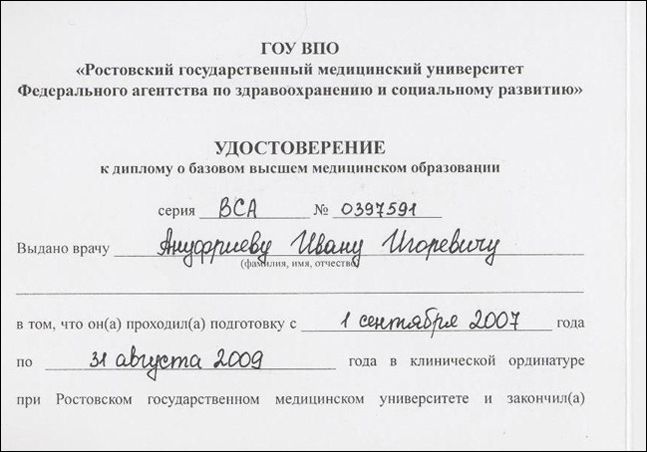 ГОУ ВПО
«Ростовский государственный медицинский университет
Федерального агентства по здравоохранению и социальному развитию»
УДОСТОВЕРЕНИЕ
к диплому о базовом высшем медицинском образовании
серия ВСА № 0397591
Выдано врачу Ануфриеву Ивану Игоревичу
(фамилия, имя, отчество)
в том, что он(а) проходил(а) подготовку с 1 сентября 2007 года
по 31 августа 2009 года в клинической ординатуре
при Ростовском государственном медицинском университете и закончил(а)